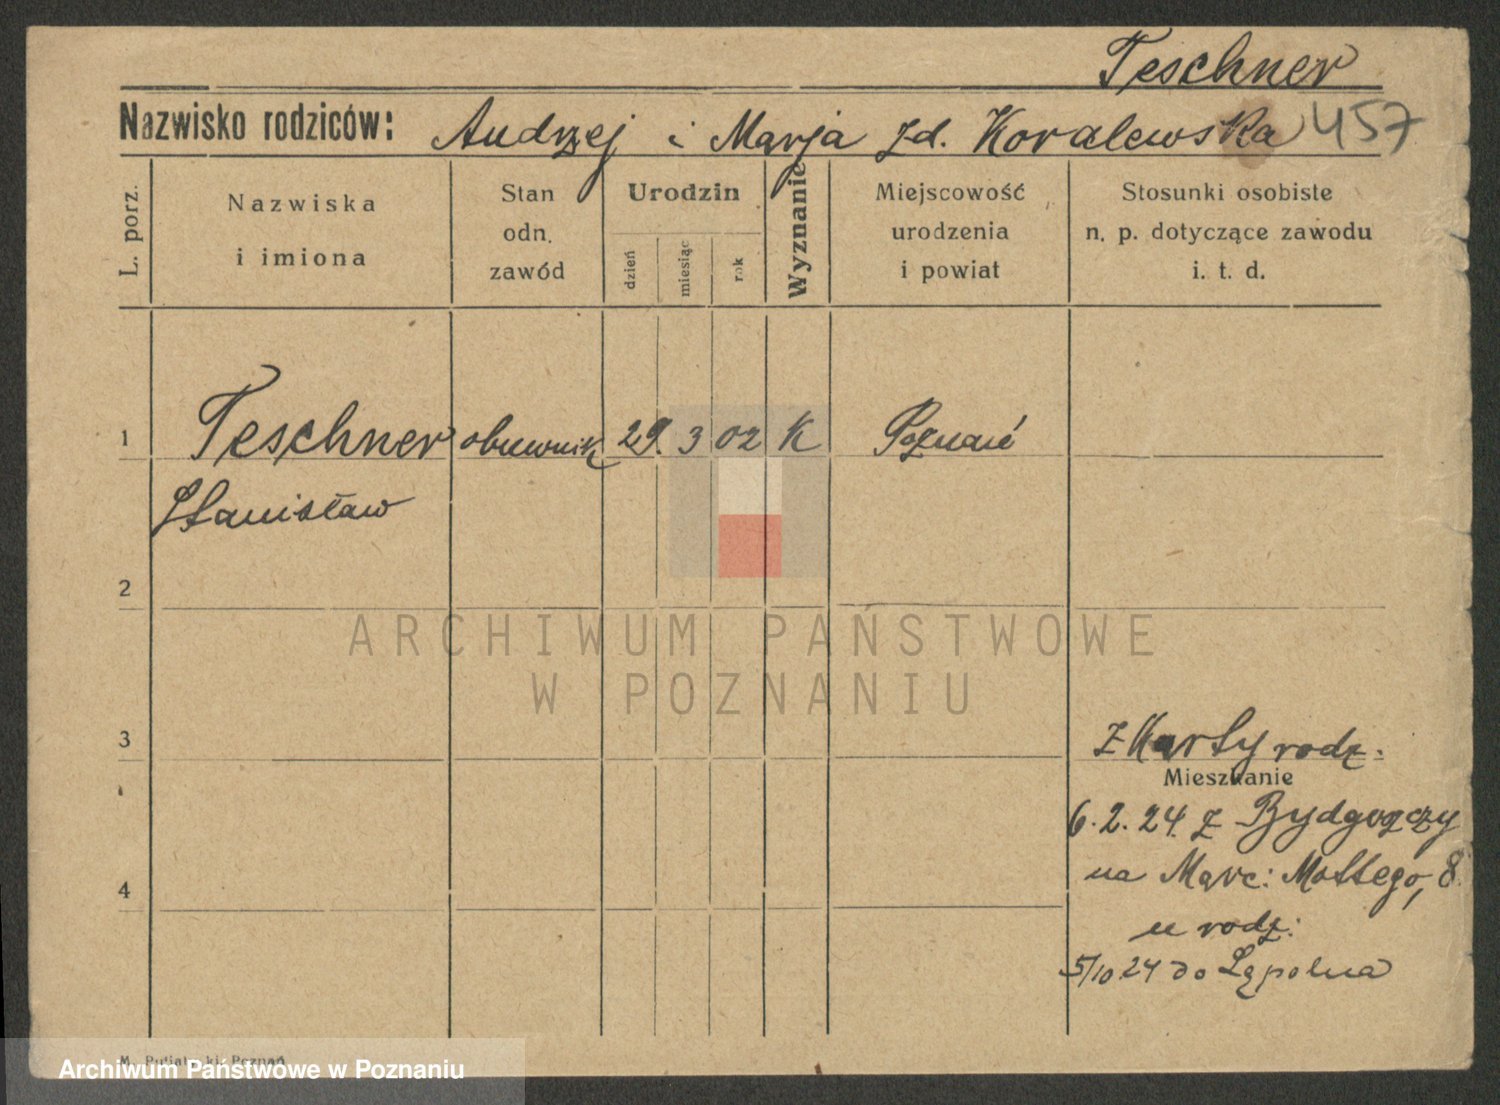 Teschner
Nazwisko rodziców: Andrzej i Marja zd. Koralewska 457
L. porz.
Nazwiska
i imiona
Stan
odn.
zawód
Urodzin
dzień
miesiąc
rok
Wyznanie
Miejscowość
urodzenia
i powiat
Stosunki osobiste
n. p. dotyczące zawodu
i. t. d.
1 Teschner obuwnik 29. 3 02 K Poznań
Stanisław
2
3
z Karty rodz.
Mieszkanie
6.2.24. z Bydgoszczy
na Marc: Mottego, 8.
4
u rodz:
5/10 24 do
M. Putiaty ki, Poznań
ARCHIWUM PAŃSTWOWE
W POZNANIU
Archiwum Państwowe w Poznaniu